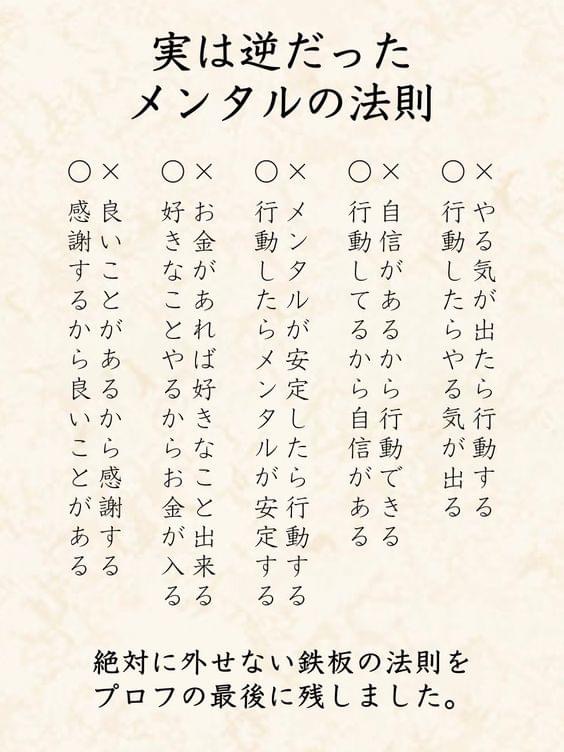 実は逆だった
メンタルの法則
×やる気が出たら行動する
〇行動したらやる気が出る
×自信があるから行動できる
〇行動してるから自信がある
×メンタルが安定したら行動する
〇行動したらメンタルが安定する
×お金があれば好きなこと出来る
〇好きなことやるからお金が入る
×良いことがあるから感謝する
〇感謝するから良いことがある
絶対に外せない鉄板の法則を
プロフの最後に残しました。